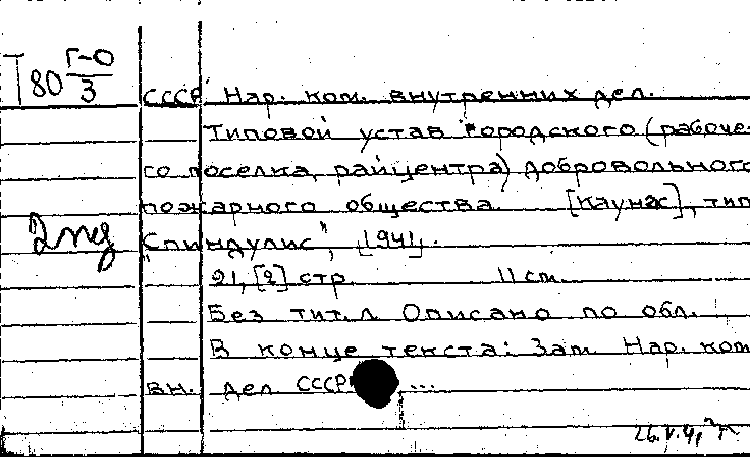 Т80 Г-О
3
СССР Нар. ком. внутренних дел.
Типовой устав городского (рабоче-
го поселка, райцентра) добровольного
пожарного общества [Каунас], тип
2
"Спиндулис", [1941].
21, [2] стр. 11 см.
Без тит. л. Описано по обл.
В конце текста: Зам. Нар. ком
вн. дел СССР ...